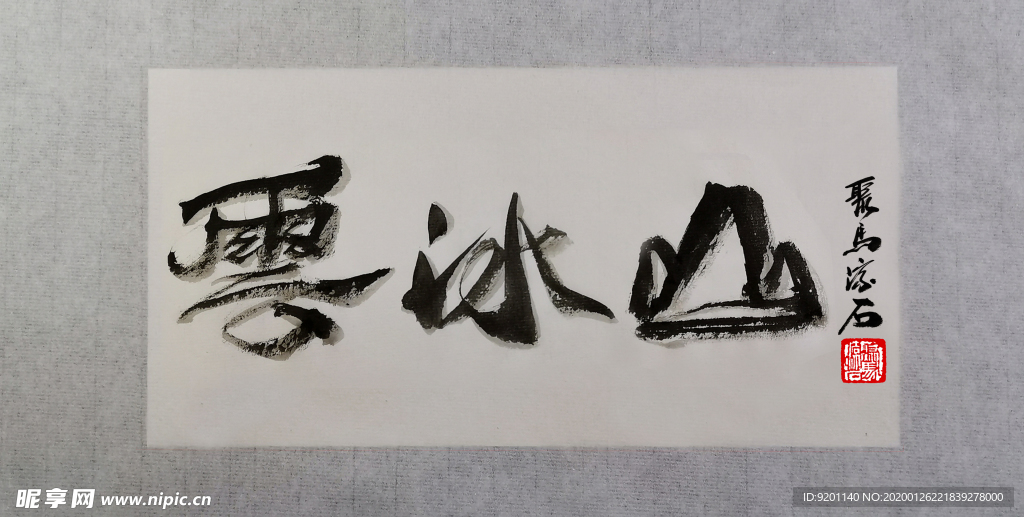 雲冰山
聚馬深石
昵享网 www.nipic.cn
ID:9201140 NO:20200126221839278000